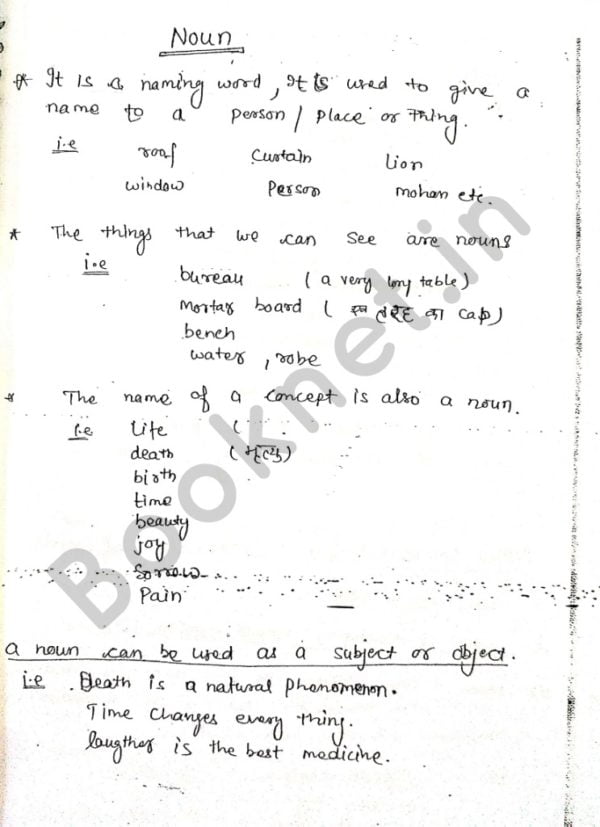 Noun
* It is a naming word, It is used to give a
name to a person / place or thing.
i.e roof Curtain Lion
window Person mohan etc.
* The things that we can see are nouns
i.e
bureau (a very long table)
mortar board ( एक तरह का cap)
bench
water, robe
* The name of a concept is also a noun.
i.e Life (
death (मृत्यु)
birth
time
beauty
joy
sorrow
Pain
a noun can be used as a subject or object.
i.e Death is a natural phenomenon.
Time changes every thing.
laugther is the best medicine.
Booknet.in